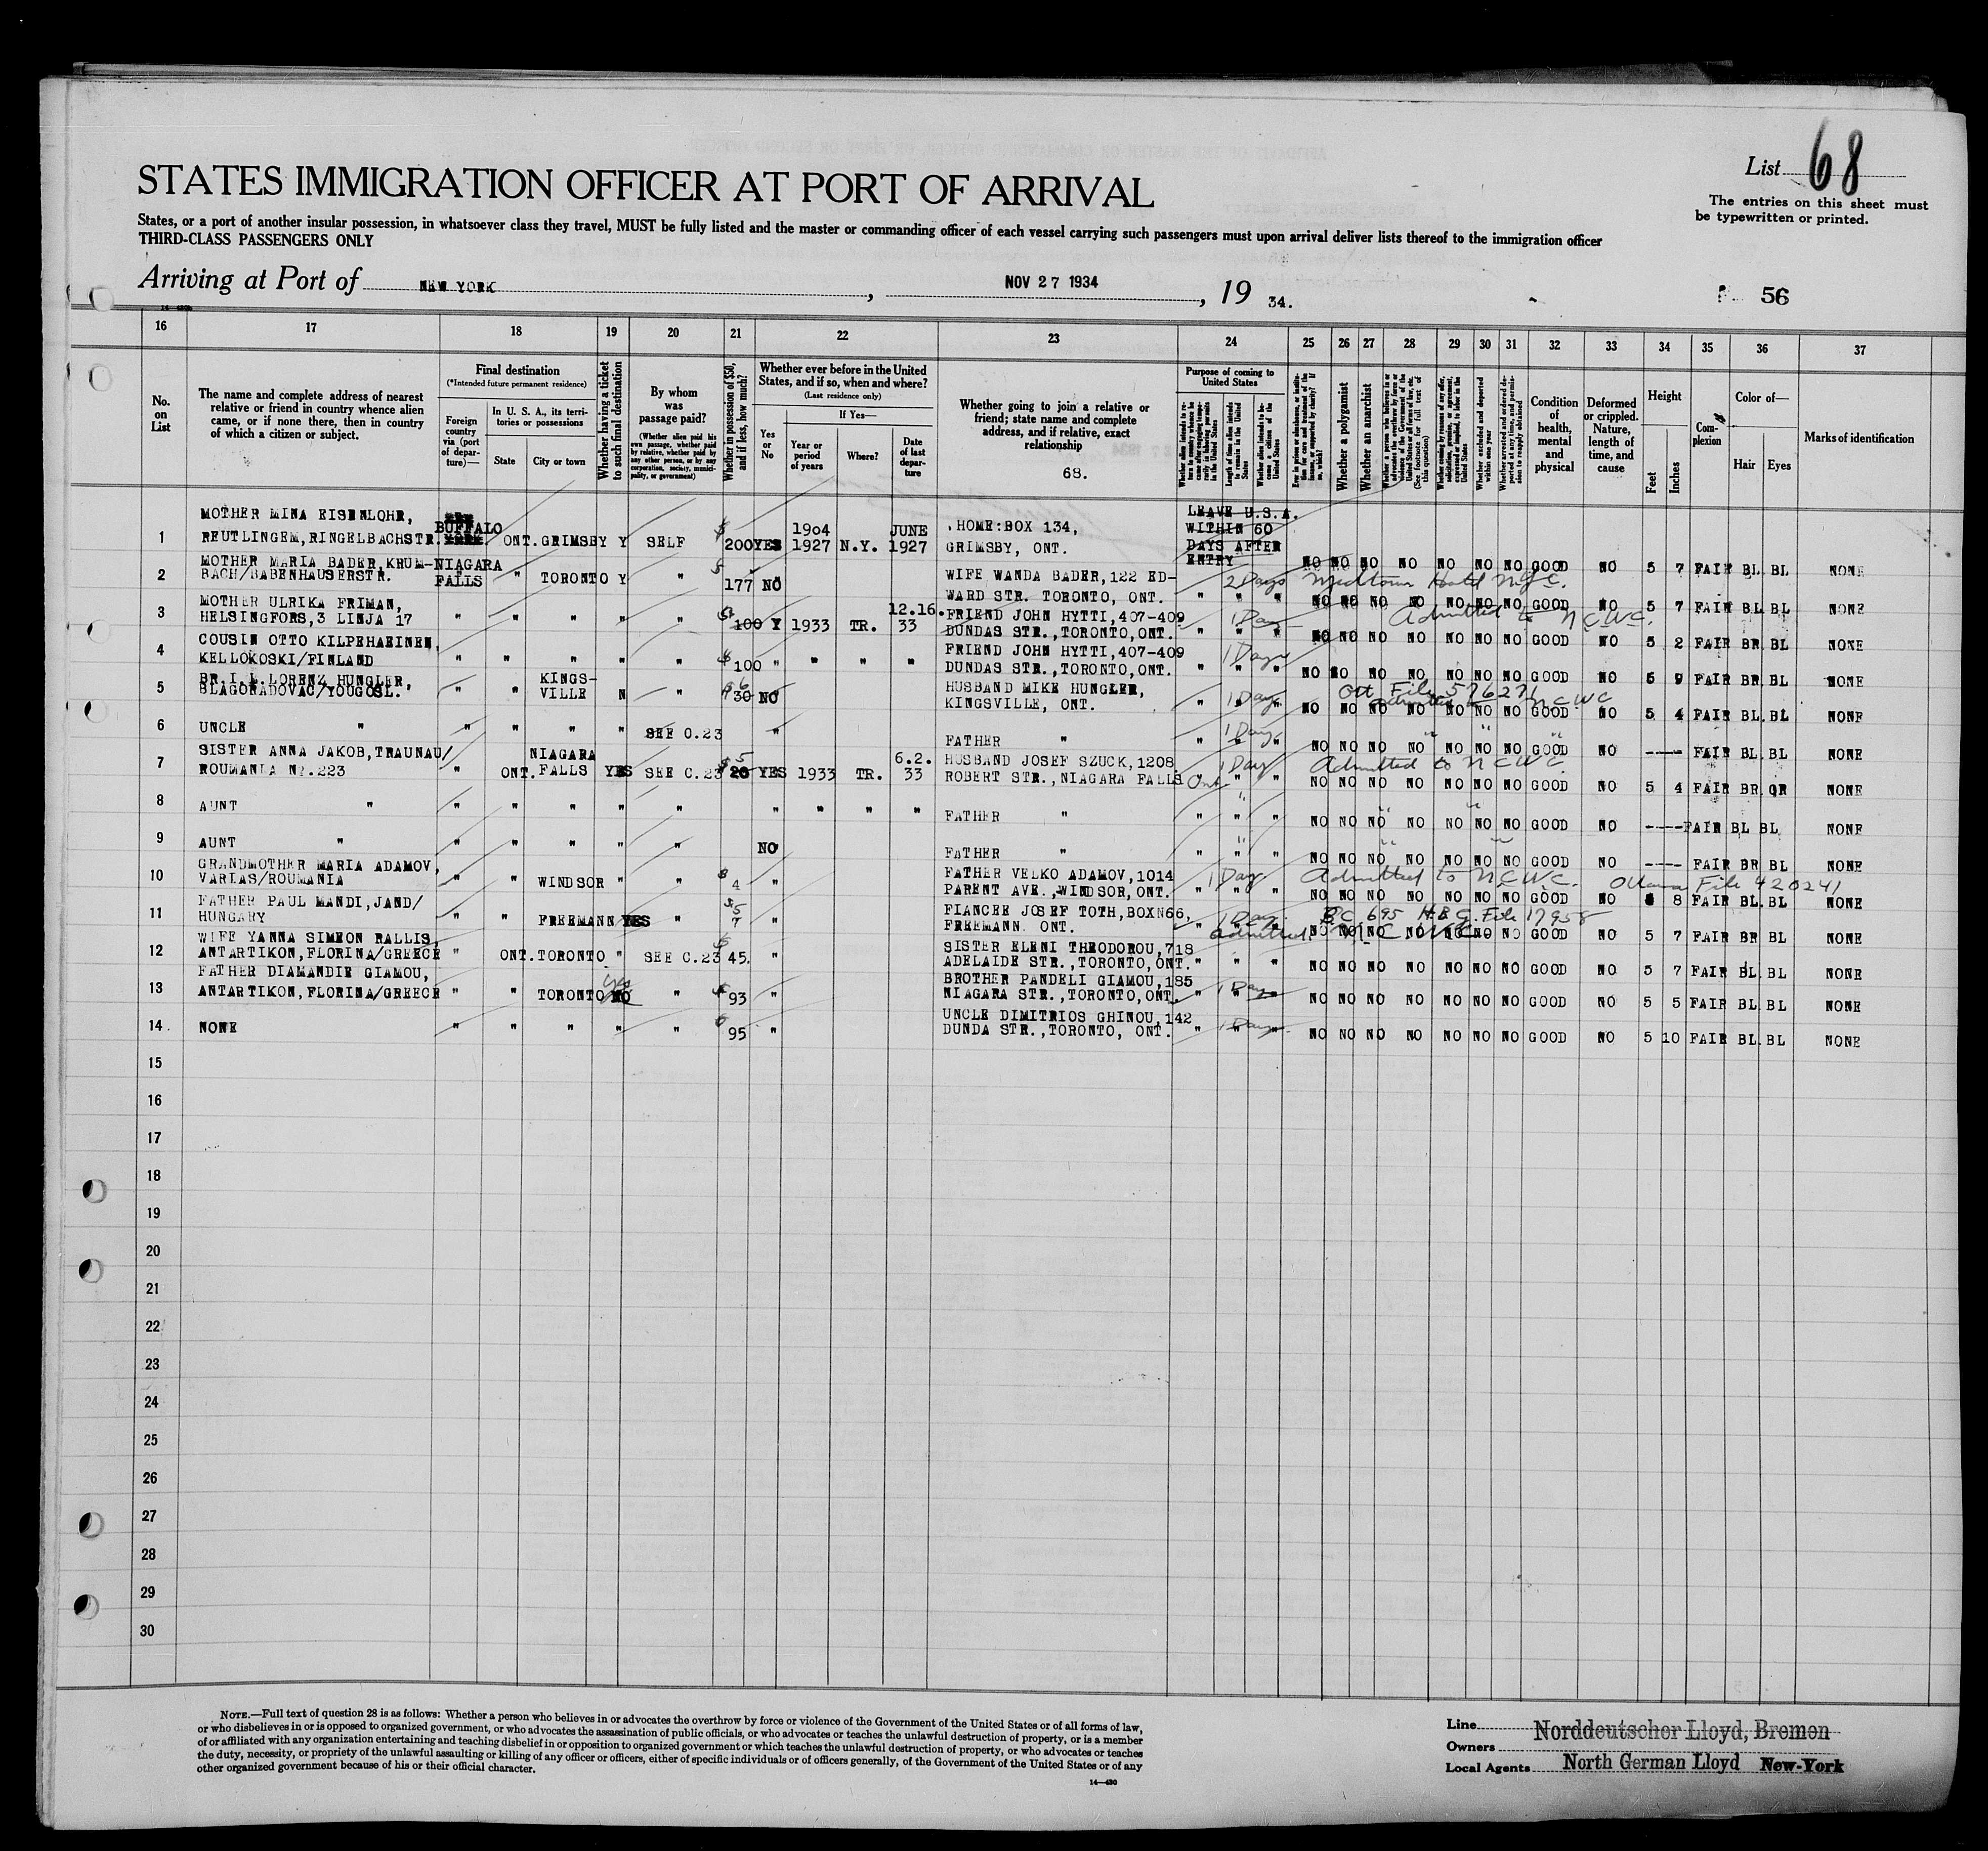 List 68
The entries on this sheet must
be typewritten or printed.
STATES IMMIGRATION OFFICER AT PORT OF ARRIVAL
States, or a port of another insular possession, in whatsoever class they travel, MUST be fully listed and the master or commanding officer of each vessel carrying such passengers must upon arrival deliver lists thereof to the immigration officer
THIRD-CLASS PASSENGERS ONLY
Arriving at Port of NEW YORK, NOV 27 1934, 19 34.
56
16 17 18 19 20 21 22 23 24 25 26 27 28 29 30 31 32 33 34 35 36 37
No. on List
The name and complete address of nearest
relative or friend in country whence alien
came, or if none there, then in country
of which a citizen or subject.
Final destination
(*Intended future permanent residence)
Foreign country via (port of departure)—
In U. S. A., its territories or possessions
State
City or town
Whether having a ticket to such final destination
By whom was passage paid?
(Whether alien paid his own passage, whether paid by relative, whether paid by any other person, or by any corporation, society, municipality, or government)
Whether in possession of $50, and if less, how much?
Whether ever before in the United
States, and if so, when and where?
(Last residence only)
If Yes—
Yes or No
Year or period of years
Where?
Date of last departure
Whether going to join a relative or
friend; state name and complete
address, and if relative, exact
relationship
68.
Purpose of coming to United States
Whether a polygamist
Whether an anarchist
Condition of health, mental and physical
Deformed or crippled. Nature, length of time, and cause
Height
Feet
Inches
Complexion
Color of—
Hair
Eyes
Marks of identification
LEAVE U.S.A.
WITHIN 60
DAYS AFTER
ENTRY
1 MOTHER MINA EISENLOHR,
REUTLINGEM, RINGELBACHSTR. BUFFALO ONT. GRIMSBY Y SELF $ 200 YES 1904 1927 N.Y. JUNE 1927 HOME: BOX 134, GRIMSBY, ONT. NO NO NO NO NO NO NO GOOD NO 5 7 FAIR BL BL NONE
2 MOTHER MARIA BADER, KRUM-
BACH/BABENHAUSERSTR. NIAGARA FALLS " TORONTO Y " $ 177 NO WIFE WANDA BADER, 122 ED-
WARD STR. TORONTO, ONT. " " " 2 Days Midtown Hotel N.Y.C. NO NO NO NO NO NO NO GOOD NO 5 7 FAIR BL BL NONE
3 MOTHER ULRIKA FRIMAN,
HELSINGFORS, 3 LINJA 17 " " " " " $ 100 Y 1933 TR. 12.16. 33 FRIEND JOHN HYTTI, 407-409
DUNDAS STR., TORONTO, ONT. " " " 1 Day Admitted to N.C.W.C. NO NO NO NO NO NO NO GOOD NO 5 2 FAIR BR BL NONE
4 COUSIN OTTO KILPEHAEINEN,
KELLOKOSKI/FINLAND " " " " " $ 100 " " " " FRIEND JOHN HYTTI, 407-409
DUNDAS STR., TORONTO, ONT. " " " 1 Day NO NO NO NO NO NO NO GOOD NO 5 9 FAIR BR BL NONE
5 BR.I.L. LORENZ HUNGLER,
BLAGORADOVAC/YOUGOSL. " " KINGS-
VILLE N " 30 NO HUSBAND MIKE HUNGLER,
KINGSVILLE, ONT. " " " 1 Day Ott File 576271 NCWC NO NO NO NO NO NO NO GOOD NO 5 4 FAIR BL BL NONE
6 UNCLE " " " " " SEE C.23 " FATHER " " " " 1 Day NO NO NO NO NO NO NO GOOD NO ---- FAIR BL BL NONE
7 SISTER ANNA JAKOB, TRAUNAU/
ROUMANIA NR.223 " ONT. NIAGARA
FALLS YES SEE C.23 $ 5 20 YES 1933 TR. 6.2. 33 HUSBAND JOSEF SZUCK, 1208
ROBERT STR., NIAGARA FALLS Ont. " " " 1 Day Admitted to NCWC. NO NO NO NO NO NO NO GOOD NO 5 4 FAIR BR GR NONE
8 AUNT " " " " " " " " " " FATHER " " " " NO NO NO NO NO NO NO GOOD NO ---- FAIR BL BL NONE
9 AUNT " " " " " " NO FATHER " " " " NO NO NO NO NO NO NO GOOD NO ---- FAIR BR BL NONE
10 GRANDMOTHER MARIA ADAMOV,
VARIAS/ROUMANIA " " WINDSOR " " $ 4 " FATHER VELKO ADAMOV, 1014
PARENT AVE., WINDSOR, ONT. " " " 1 Day Admitted to N.C.W.C. Ottawa File 420241 NO NO NO NO NO NO NO GOOD NO 8 FAIR BL BL NONE
11 FATHER PAUL MANDI, JAND/
HUNGARY " " FREEMANN YES " $ 5 7 " FIANCEE JOSEF TOTH, BOXN66,
FREEMANN. ONT. " " " 1 Day. B.C. 695 H.B.G. File 17958 Admitted NO NO NO NO NO NO NO GOOD NO 5 7 FAIR BR BL NONE
12 WIFE YANNA SIMEON RALLIS,
ANTARTIKON, FLORINA/GREECE " ONT. TORONTO " SEE C.23 $ 45. " SISTER ELENI THEODOROU, 718
ADELAIDE STR., TORONTO, ONT. " " " NO NO NO NO NO NO NO GOOD NO 5 7 FAIR BL BL NONE
13 FATHER DIAMANDIE GIAMOU,
ANTARTIKON, FLORINA/GREECE " " TORONTO yes NO " $ 93 " BROTHER PANDELI GIAMOU, 185
NIAGARA STR., TORONTO, ONT. " " " 1 Day NO NO NO NO NO NO NO GOOD NO 5 5 FAIR BL BL NONE
14 NONE " " " " " $ 95 " UNCLE DIMITRIOS GHINOU, 142
DUNDA STR., TORONTO, ONT. " " " 1 Day. NO NO NO NO NO NO NO GOOD NO 5 10 FAIR BL BL NONE
15
16
17
18
19
20
21
22
23
24
25
26
27
28
29
30
NOTE.—Full text of question 28 is as follows: Whether a person who believes in or advocates the overthrow by force or violence of the Government of the United States or of all forms of law,
or who disbelieves in or is opposed to organized government, or who advocates the assassination of public officials, or who advocates or teaches the unlawful destruction of property, or is a member
of or affiliated with any organization entertaining and teaching disbelief in or opposition to organized government or which teaches the unlawful destruction of property, or who advocates or teaches
the duty, necessity, or propriety of the unlawful assaulting or killing of any officer or officers, either of specific individuals or of officers generally, of the Government of the United States or of any
other organized government because of his or their official character.
14—430
Line Norddeutscher Lloyd, Bremen
Owners
Local Agents North German Lloyd New-York